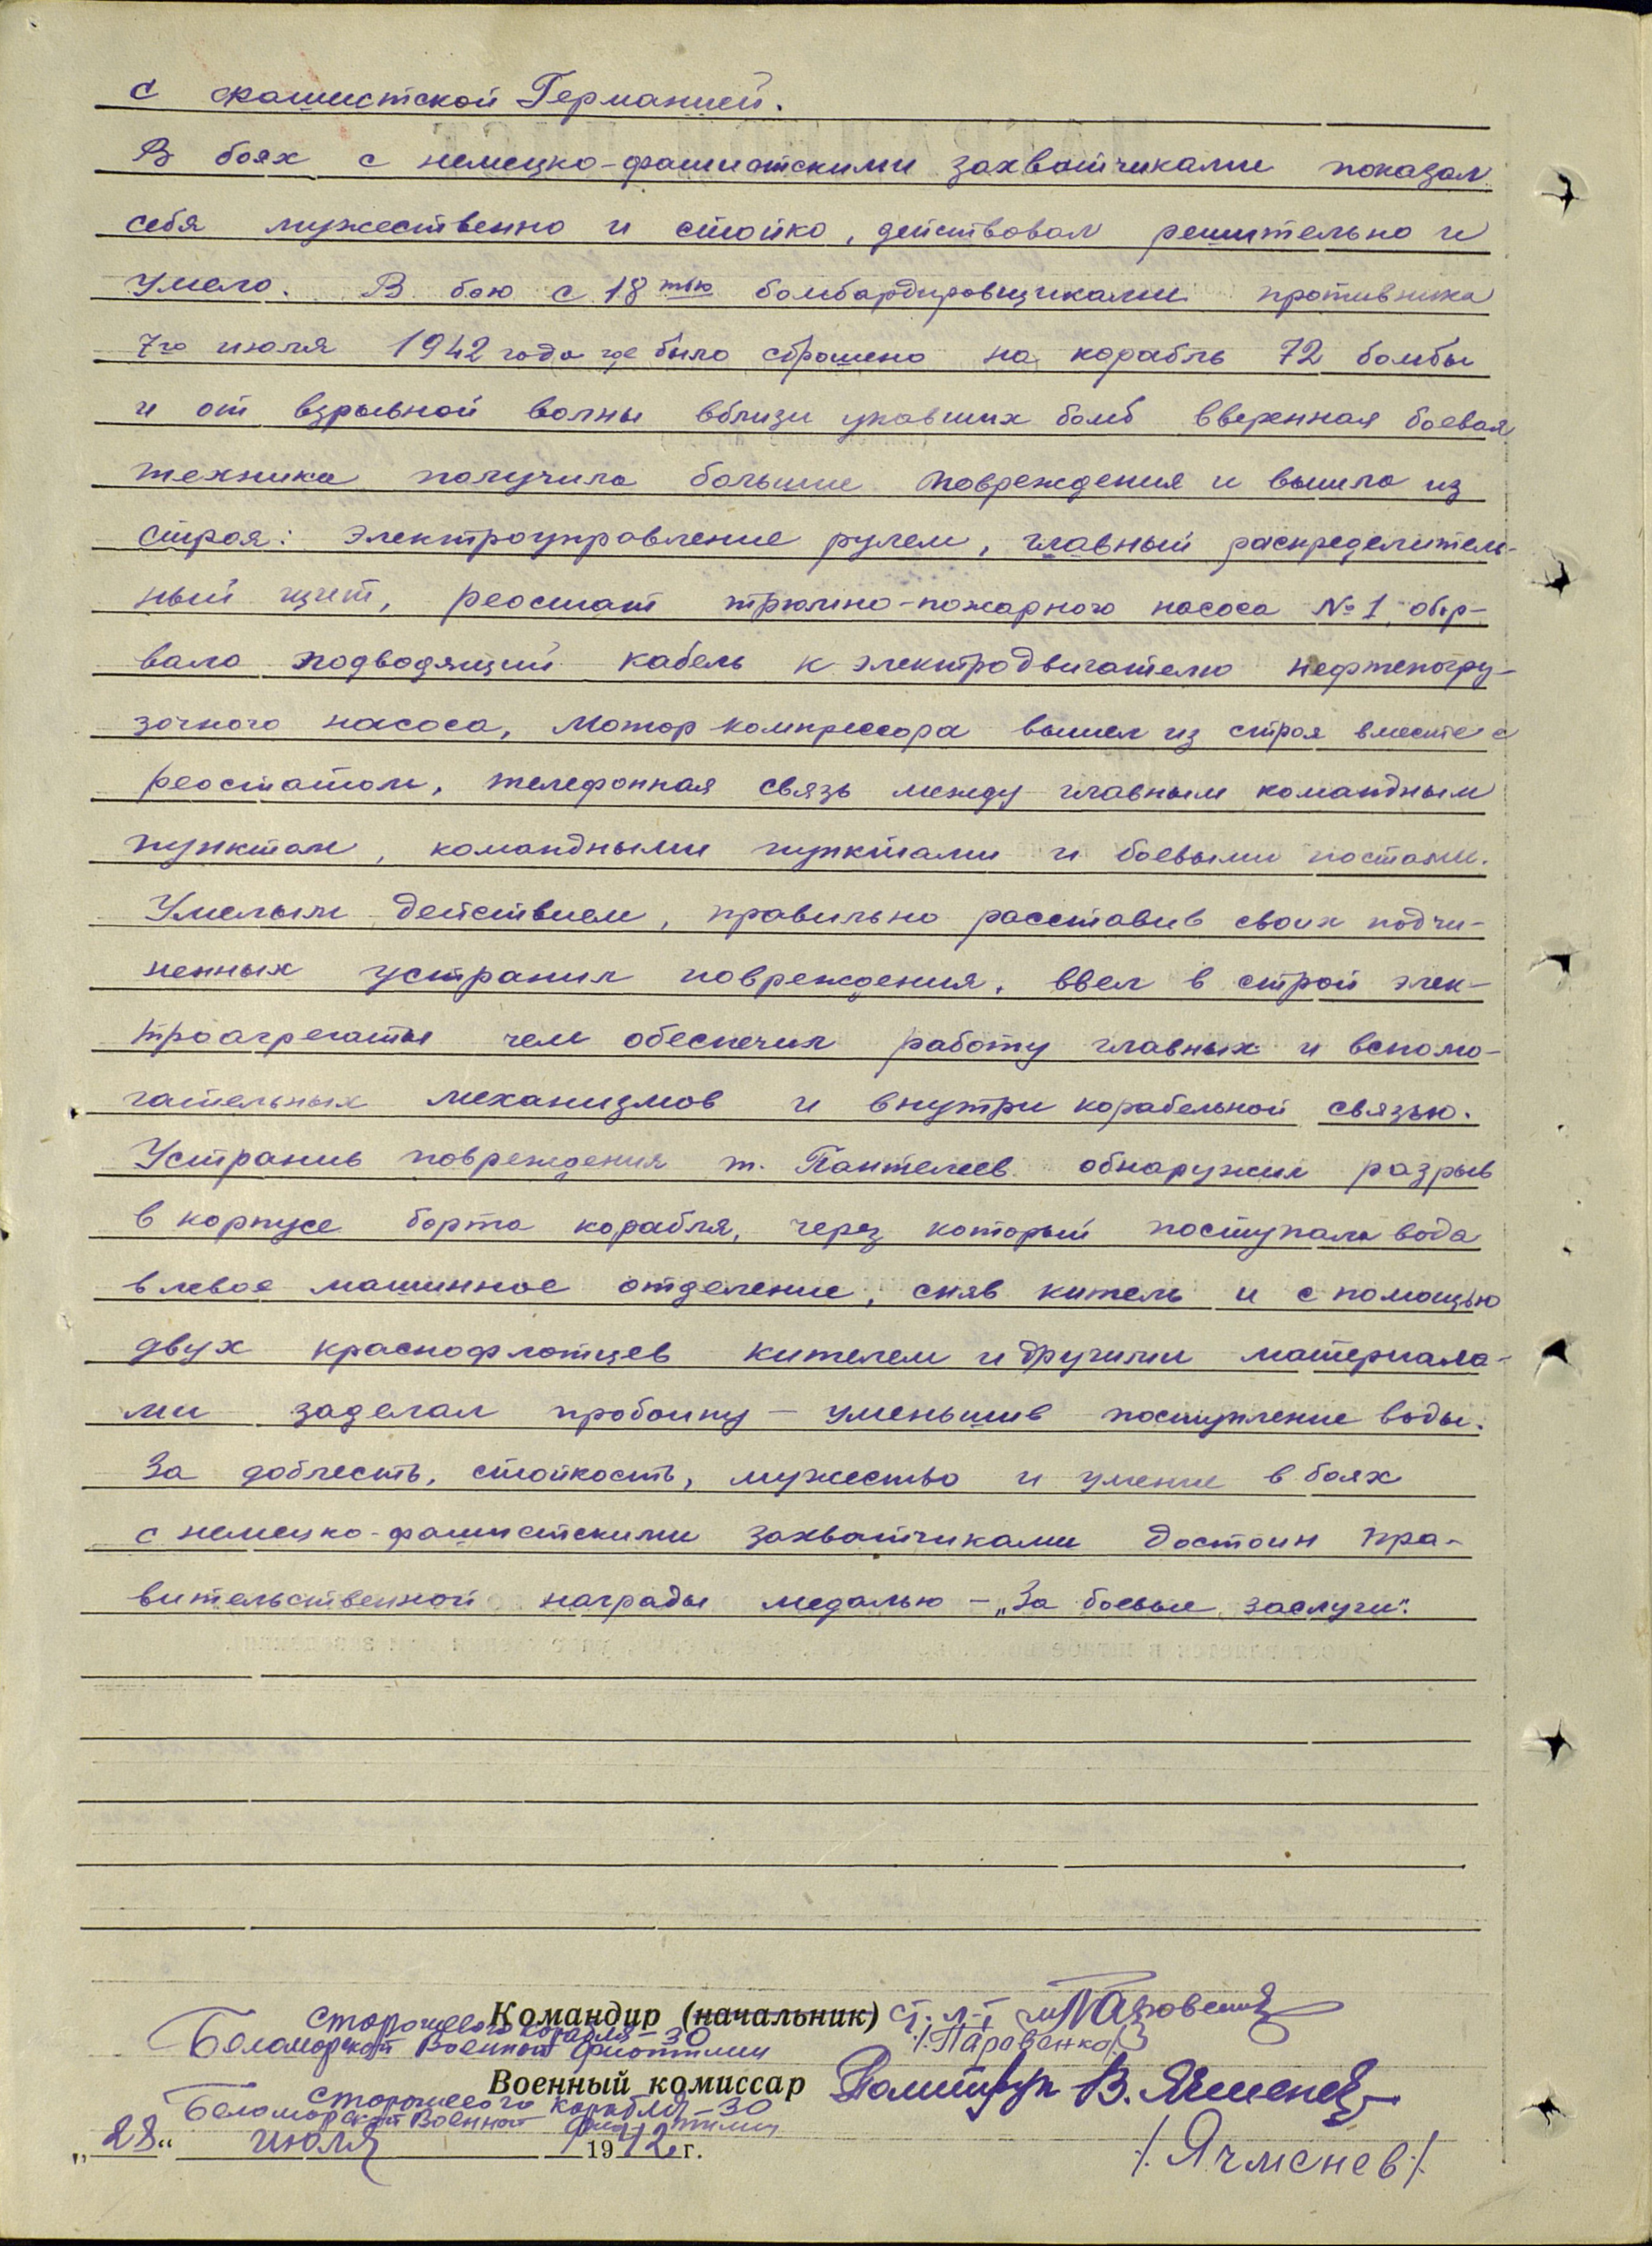 с фашистской Германией.
В боях с немецко-фашистскими захватчиками показал
себя мужественно и стойко, действовал решительно и
умело. В бою с 18тью бомбардировщиками противника
7го июля 1942 года где было сброшено на корабль 72 бомбы
и от взрывной волны вблизи упавших бомб вверенная боевая
техника получила большие повреждения и вышла из
строя: электроуправление рулем, главный распределитель-
ный щит, реостат трюмно-пожарного насоса №1, обор-
вало подводящий кабель к электродвигателю нефтепогру-
зочного насоса, мотор компрессора вышел из строя вместе с
реостатом, телефонная связь между главным командным
пунктом, командными пунктами и боевыми постами.
Умелым действием, правильно расставив своих подчи-
ненных устранил повреждения, ввел в строй элек-
троагрегаты чем обеспечил работу главных и вспомо-
гательных механизмов и внутри корабельной связью.
Устранив повреждения т. Пантелеев обнаружил разрыв
в корпусе борта корабля, через который поступала вода
в левое машинное отделение, сняв китель и с помощью
двух краснофлотцев кителем и другими материала-
ми заделал пробоину – уменьшив поступление воды.
За доблесть, стойкость, мужество и умение в боях
с немецко-фашистскими захватчиками достоин пра-
вительственной награды медалью – „За боевые заслуги".
Командир (начальник) ст. л-т
Сторожевого корабля – 30
Беломорской Военной флотилии
/Паровенко/
Военный комиссар Политрук В. Ячменев
Сторожевого корабля – 30
Беломорской Военной флотилии
„28" июля 1942 г.
/Ячменев/